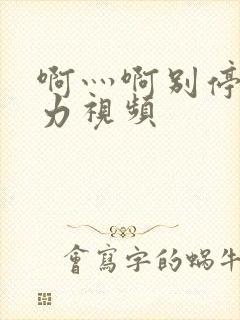 啊灬啊别停
力視頻
會寫字的蝸牛